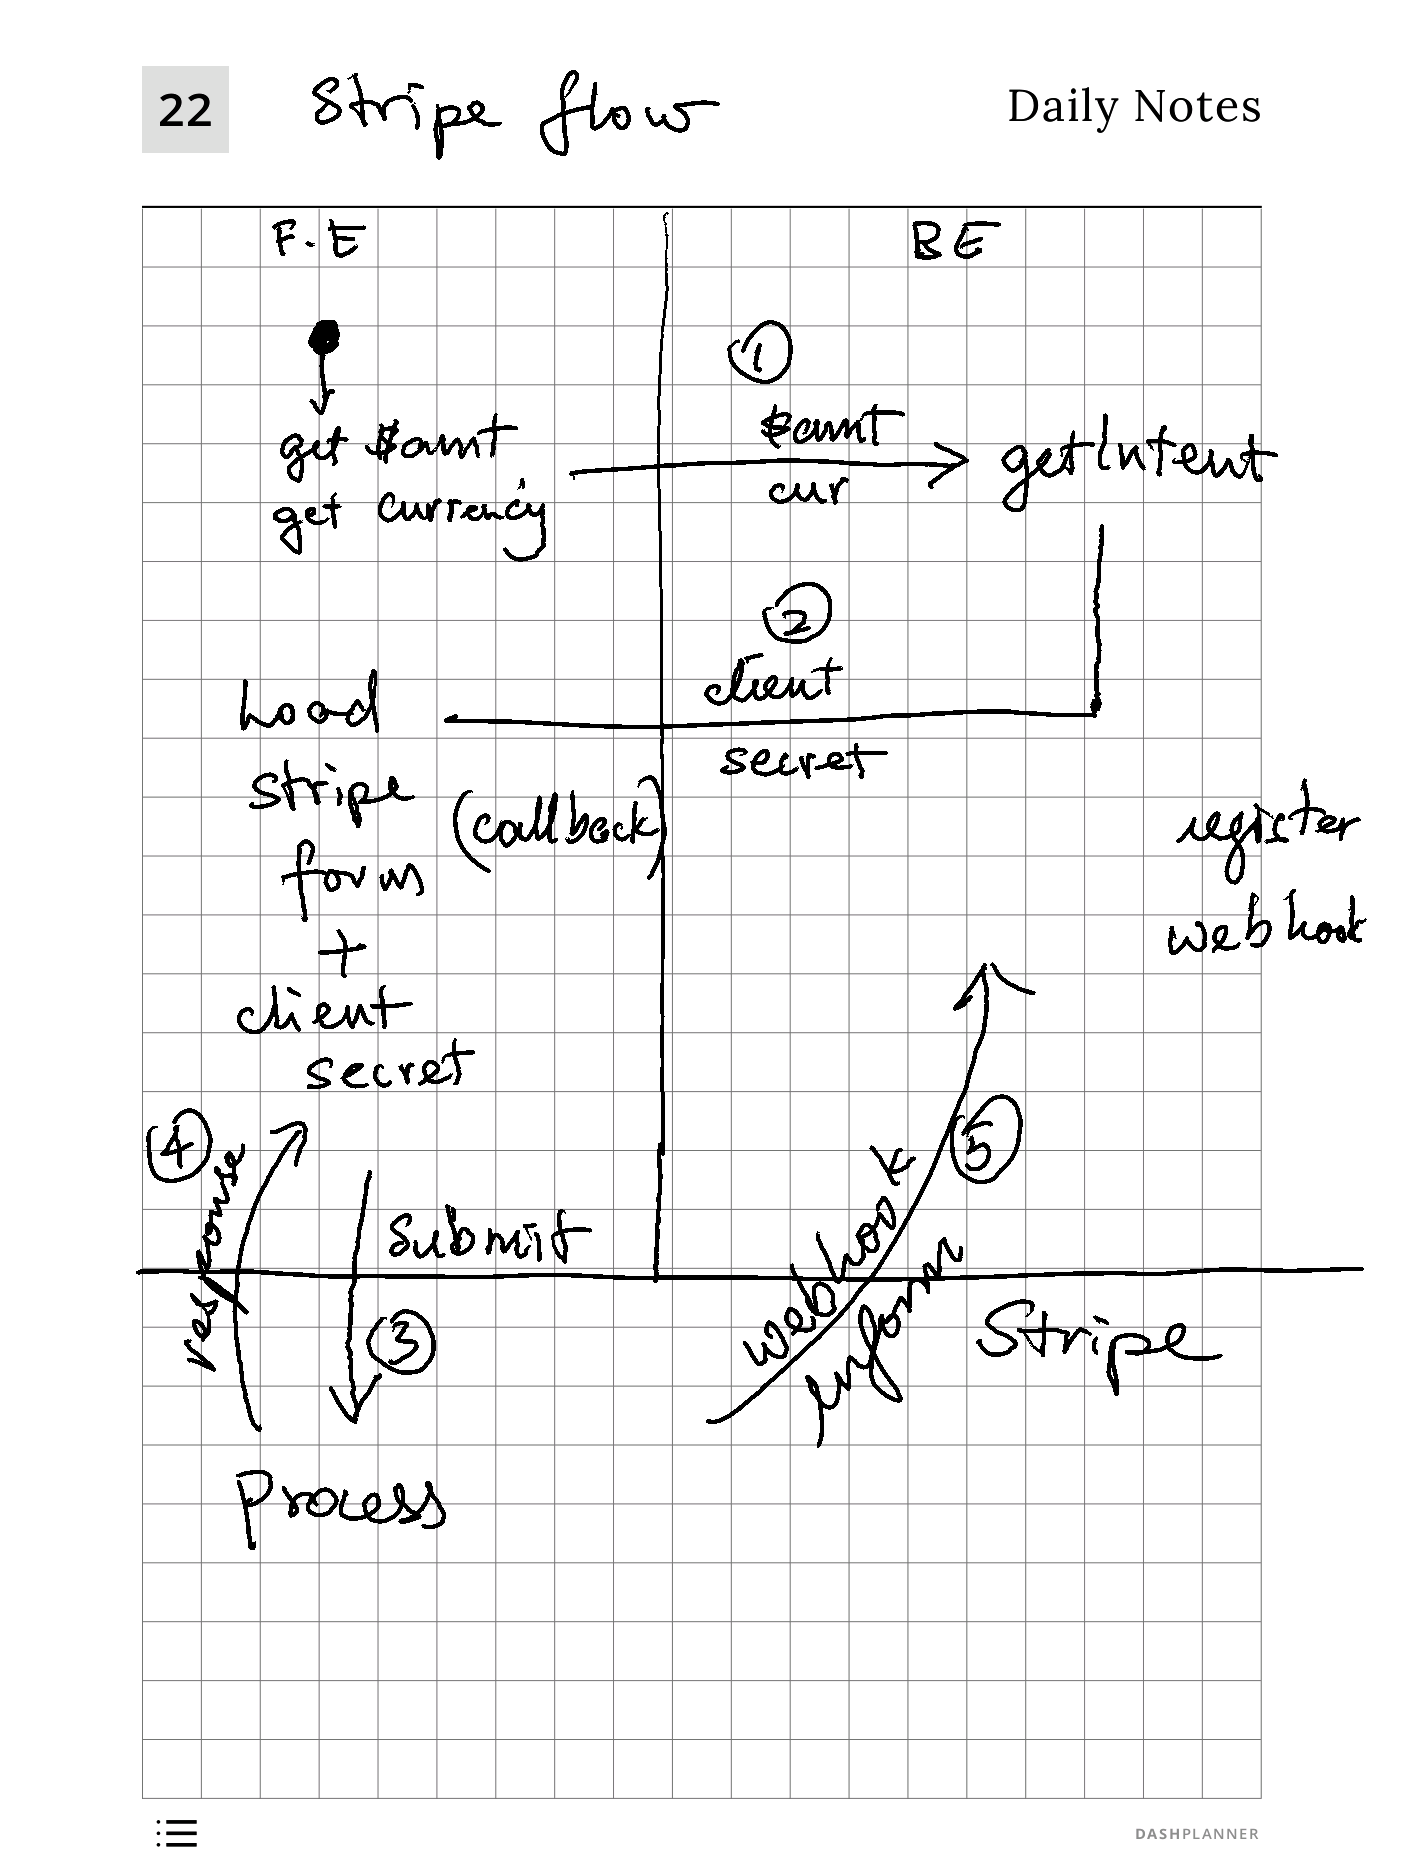 22
Stripe flow
Daily Notes
F.E
BE
1
get $amt
get currency
$amt
cur
getIntent
2
client
secret
Load
stripe
form
+
client
secret
(callback)
register
webhook
4
response
submit
3
5
webhook
inform
Stripe
Process
DASHPLANNER